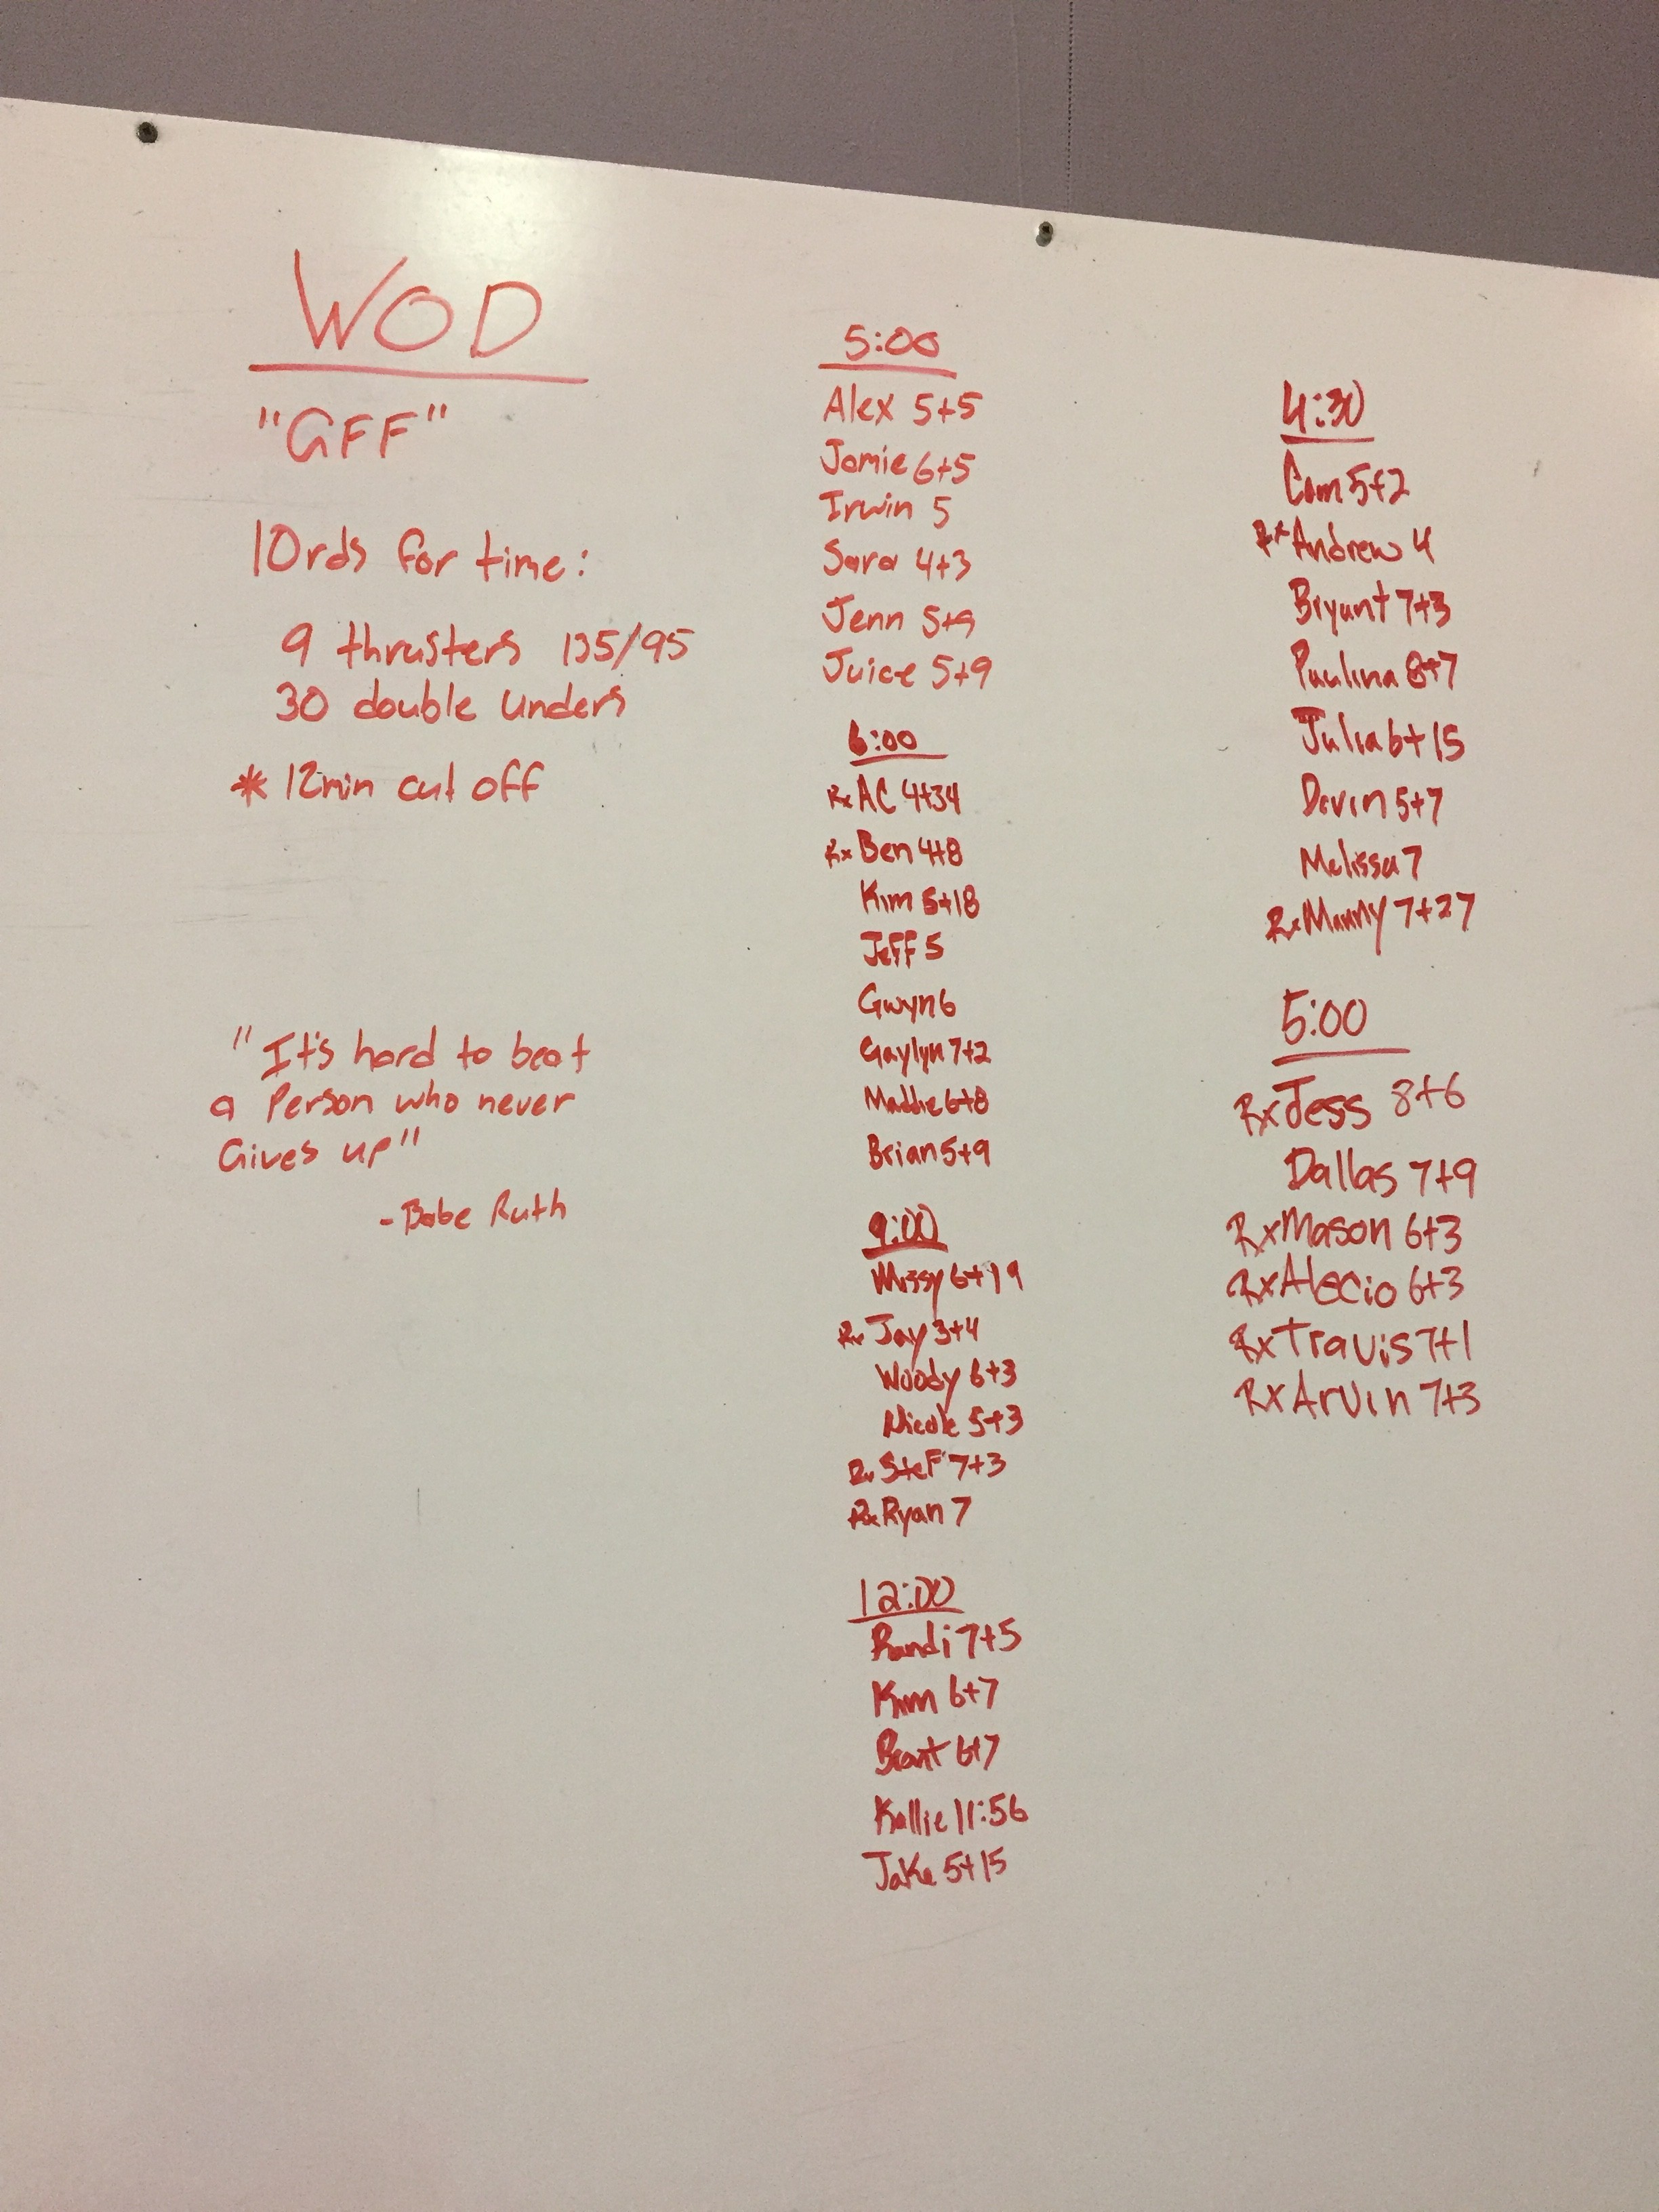 WOD
"GFF"
10rds for time:
9 thrusters 135/95
30 double unders
* 12min cut off
"It's hard to beat
a Person who never
Gives up"
- Babe Ruth
5:00
Alex 5+5
Jamie 6+5
Irwin 5
Sara 4+3
Jenn 5+9
Juice 5+9
6:00
Rx AC 4+34
Rx Ben 4+8
Kim 5+18
Jeff 5
Gwyn 6
Gaylyn 7+2
Maddie 6+8
Brian 5+9
9:00
Missy 6+19
Rx Jay 3+4
Woody 6+3
Nicole 5+3
Rx Stef 7+3
Rx Ryan 7
12:00
Randi 7+5
Kim 6+7
Brant 6+7
Kallie 11:56
Jake 5+15
4:30
Cam 5+2
Rx Andrew 4
Bryant 7+3
Paulina 8+7
Julia 6+15
Devin 5+7
Melissa 7
Rx Manny 7+27
5:00
Rx Jess 8+6
Dallas 7+9
Rx Mason 6+3
Rx Alecio 6+3
Rx Travis 7+1
Rx Arvin 7+3